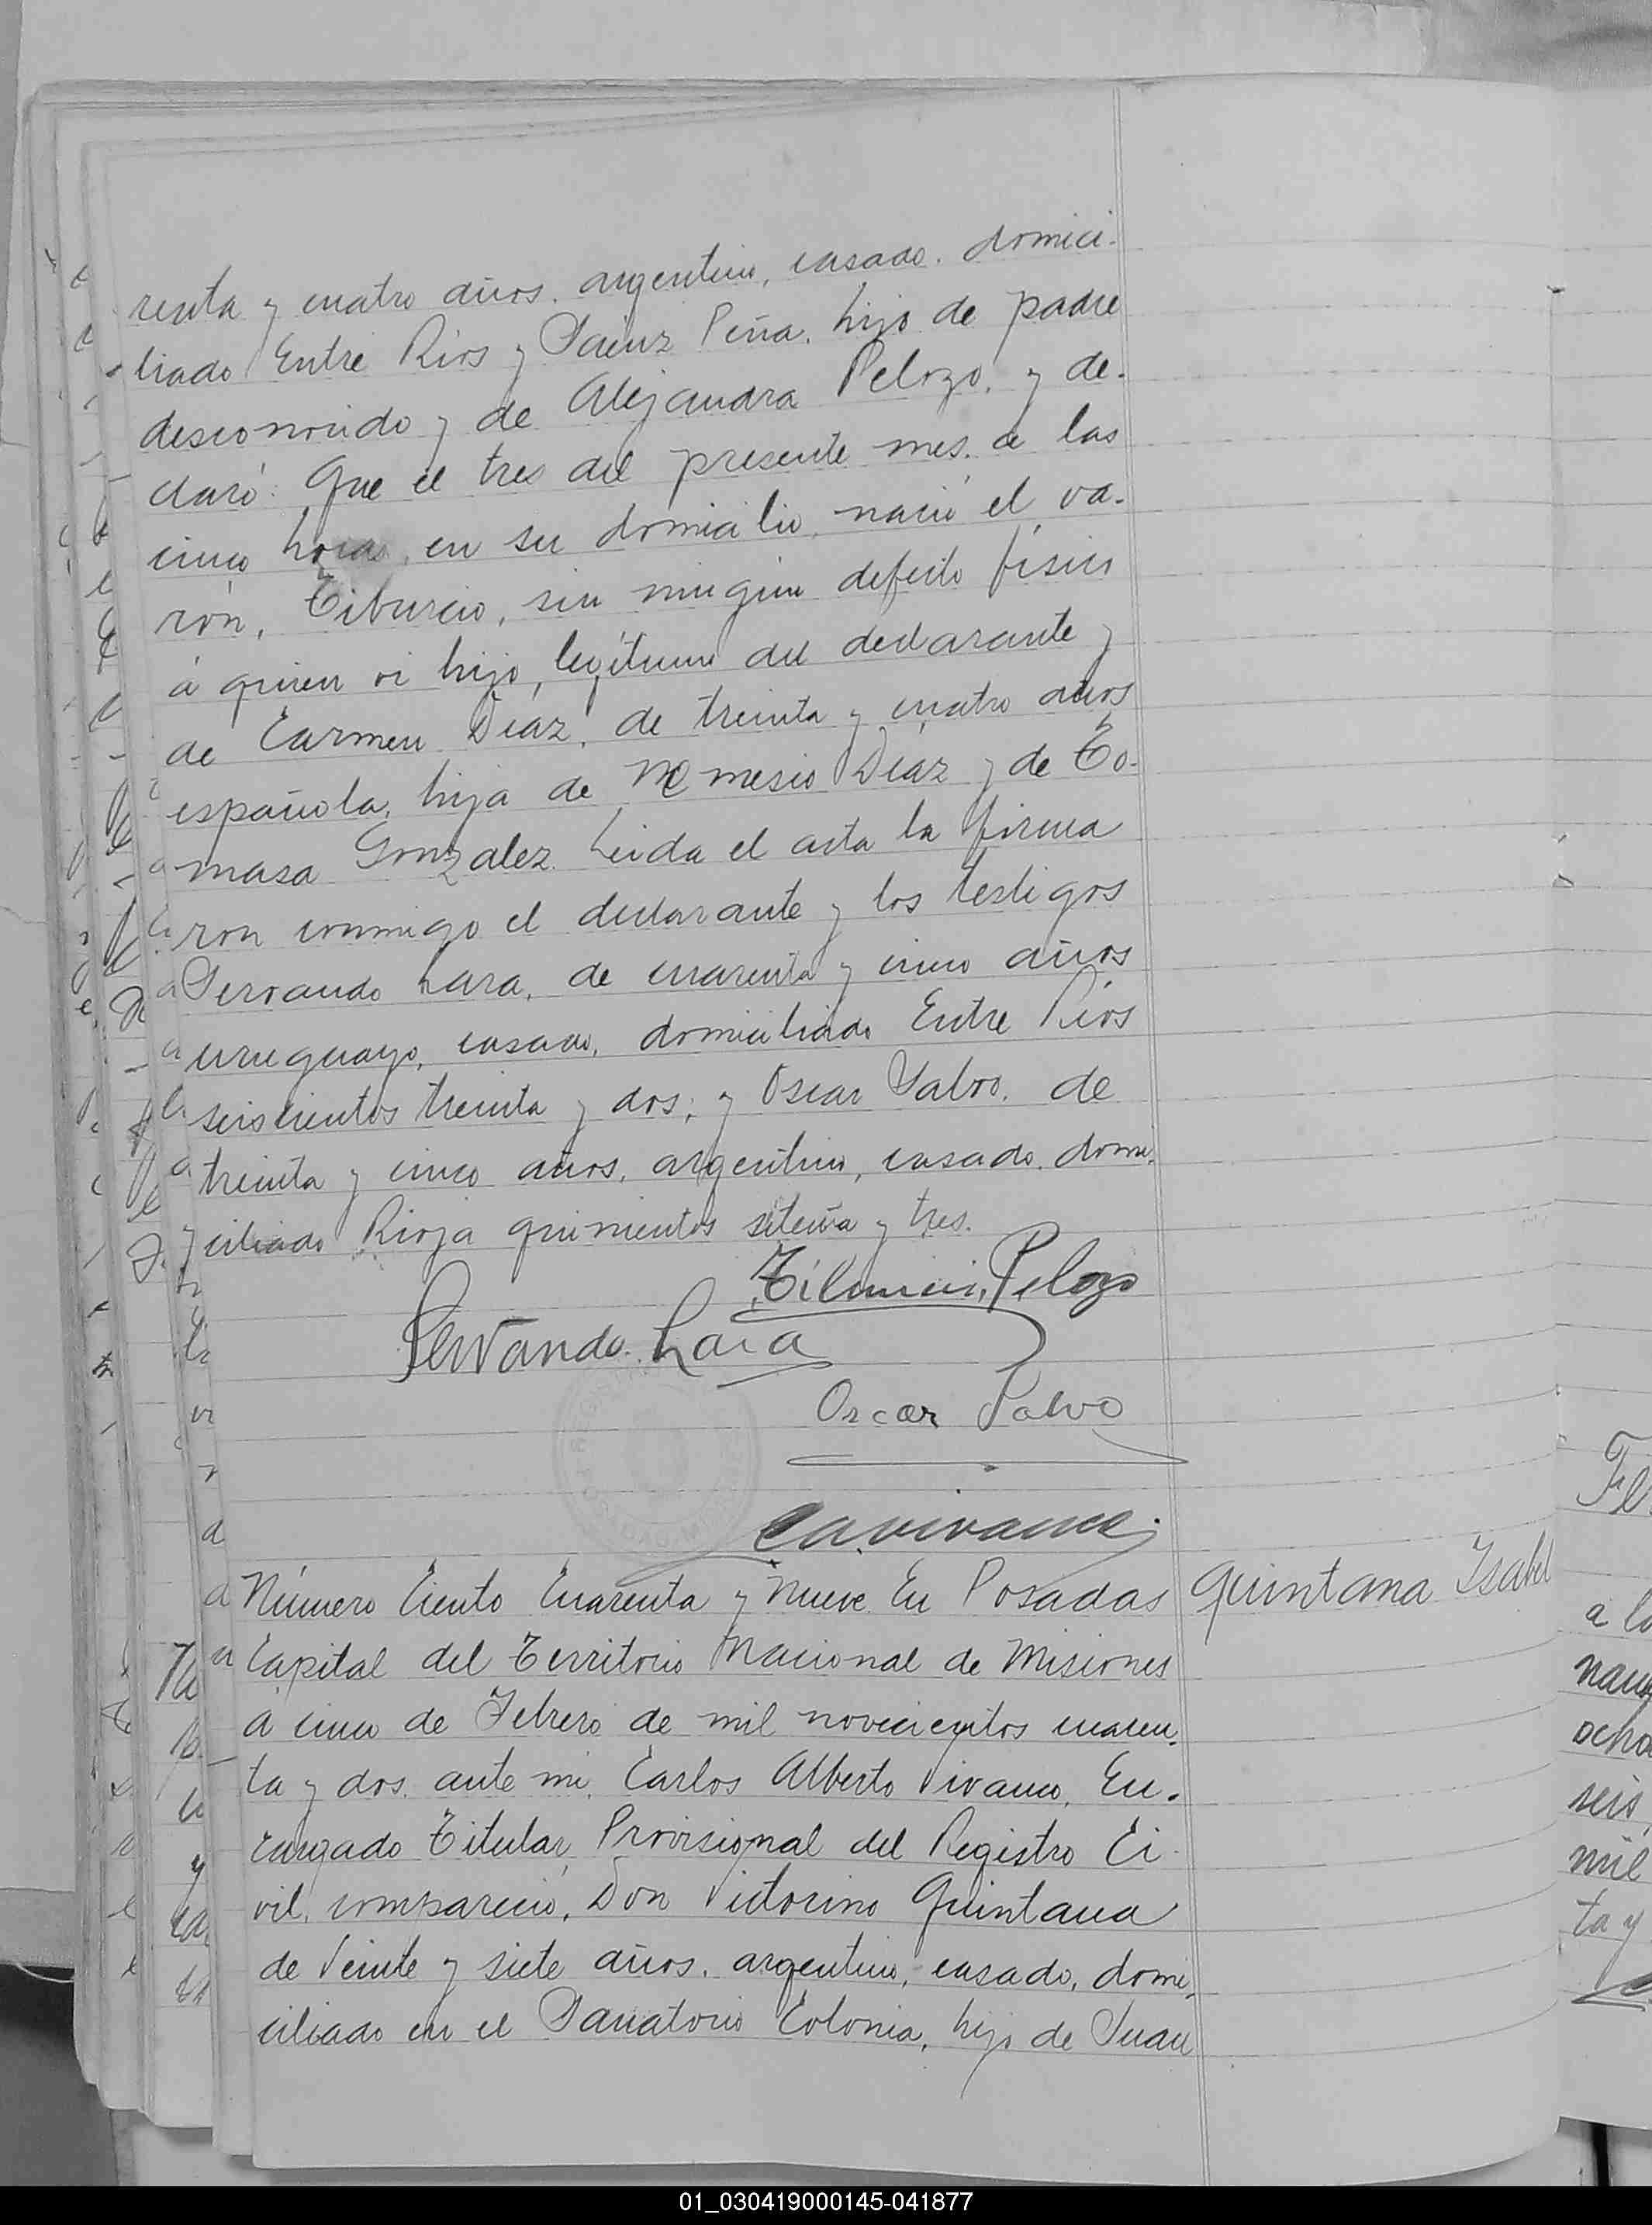 renta y cuatro años. argentino, casado. domici-
liado Entre Rios y Saenz Peña. hijo de padre
desconocido y de Alejandra Pelozo. y de-
claró: Que el tres del presente mes. a las
cinco horas, en su domicilio. nació el va-
rón, Tiburcio, sin ningún defecto físico
á quien vi hijo, legítimo del declarante y
de Carmen Díaz, de treinta y cuatro años
española. hija de Nemesio Díaz y de To-
masa Gonzalez. Leida el acta la firma
ron conmigo el declarante y los testigos
Servando Lara, de cuarenta y cinco años
uruguayo, casado, domiciliado Entre Ríos
seiscientos treinta y dos; y Oscar Salvo. de
treinta y cinco años. argentino, casado. domi-
ciliado Rioja quinientos setenta y tres.
Tiburcio Pelozo
Servando Lara
Oscar Salvo
CAVivanco
Número Ciento Cuarenta y Nueve En Posadas
Quintana Isabel
Capital del Territorio Nacional de Misiones
á cinco de Febrero de mil novecientos cuaren-
ta y dos. ante mi, Carlos Alberto Vivanco, En-
cargado Titular Provisional del Registro Ci-
vil, compareció, Don Victorino Quintana
de Veinte y siete años. argentino, casado, domi-
ciliado en el Sanatorio Colonia, hijo de Juan
01_030419000145-041877